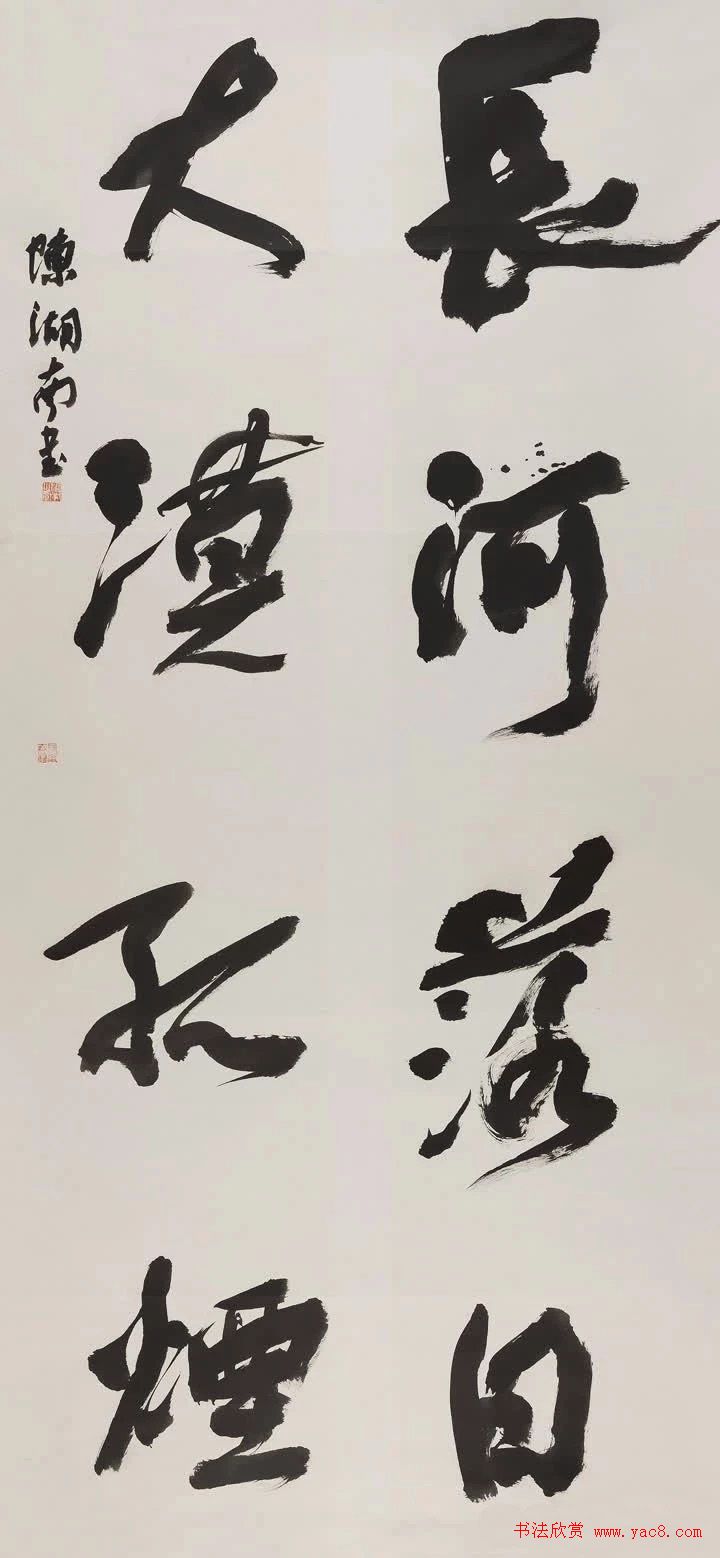 長河落日
大漠孤煙
陳湖南書
书法欣赏 www.yac8.com